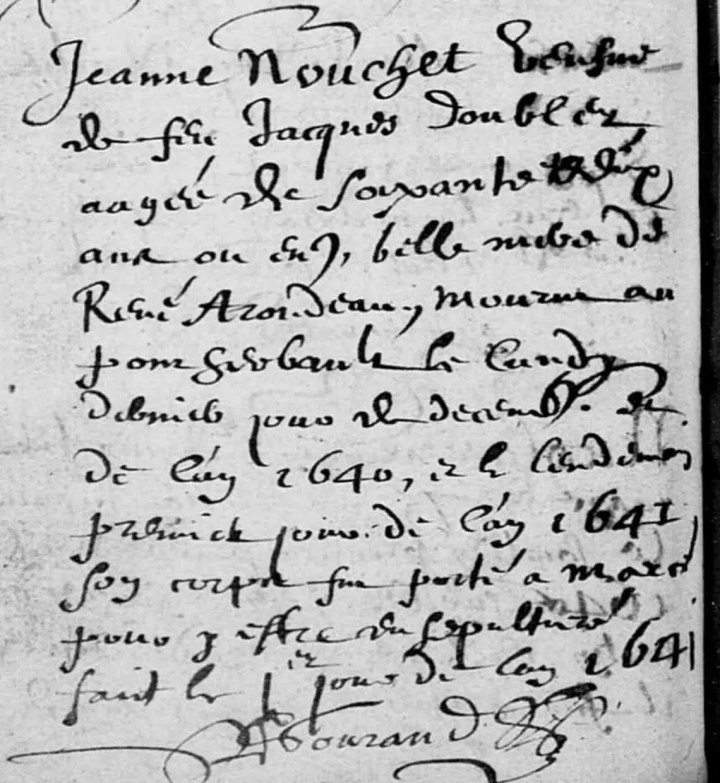 Jeanne Nouchet veufve
de feu Jacques Doublet
aagée de soixante & dix
ans ou env, belle mere de
René Arondeau, mourut au
pont herbault le lundy
dernier jour de decemb. et
de l'an 1640, et le lendemain
premier jour de l'an 1641
son corps fut porté a
pour y estre ensepulturé
fait le p.er jour de l'an 1641